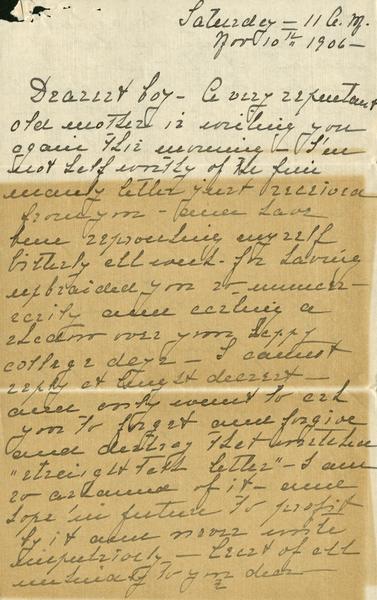 Saturday - 11 A.M.
Nov 10th 1906 -
Dearest boy - A very repentant
old mother is writing you
again this morning - I'm
not half worthy of the fine
manly letter just received
from you - and have
been reproaching myself
bitterly all week - for having
upbraided you so unneces-
sarily and casting a
shadow over your happy
college days - I cannot
reply at length dearest -
and only want to ask
you to forget and forgive
and destroy that wretched
"straight talk letter" - I am
so ashamed of it - and
hope in future to profit
by it and never write
impulsively - Least of all
unkindly to you dear -